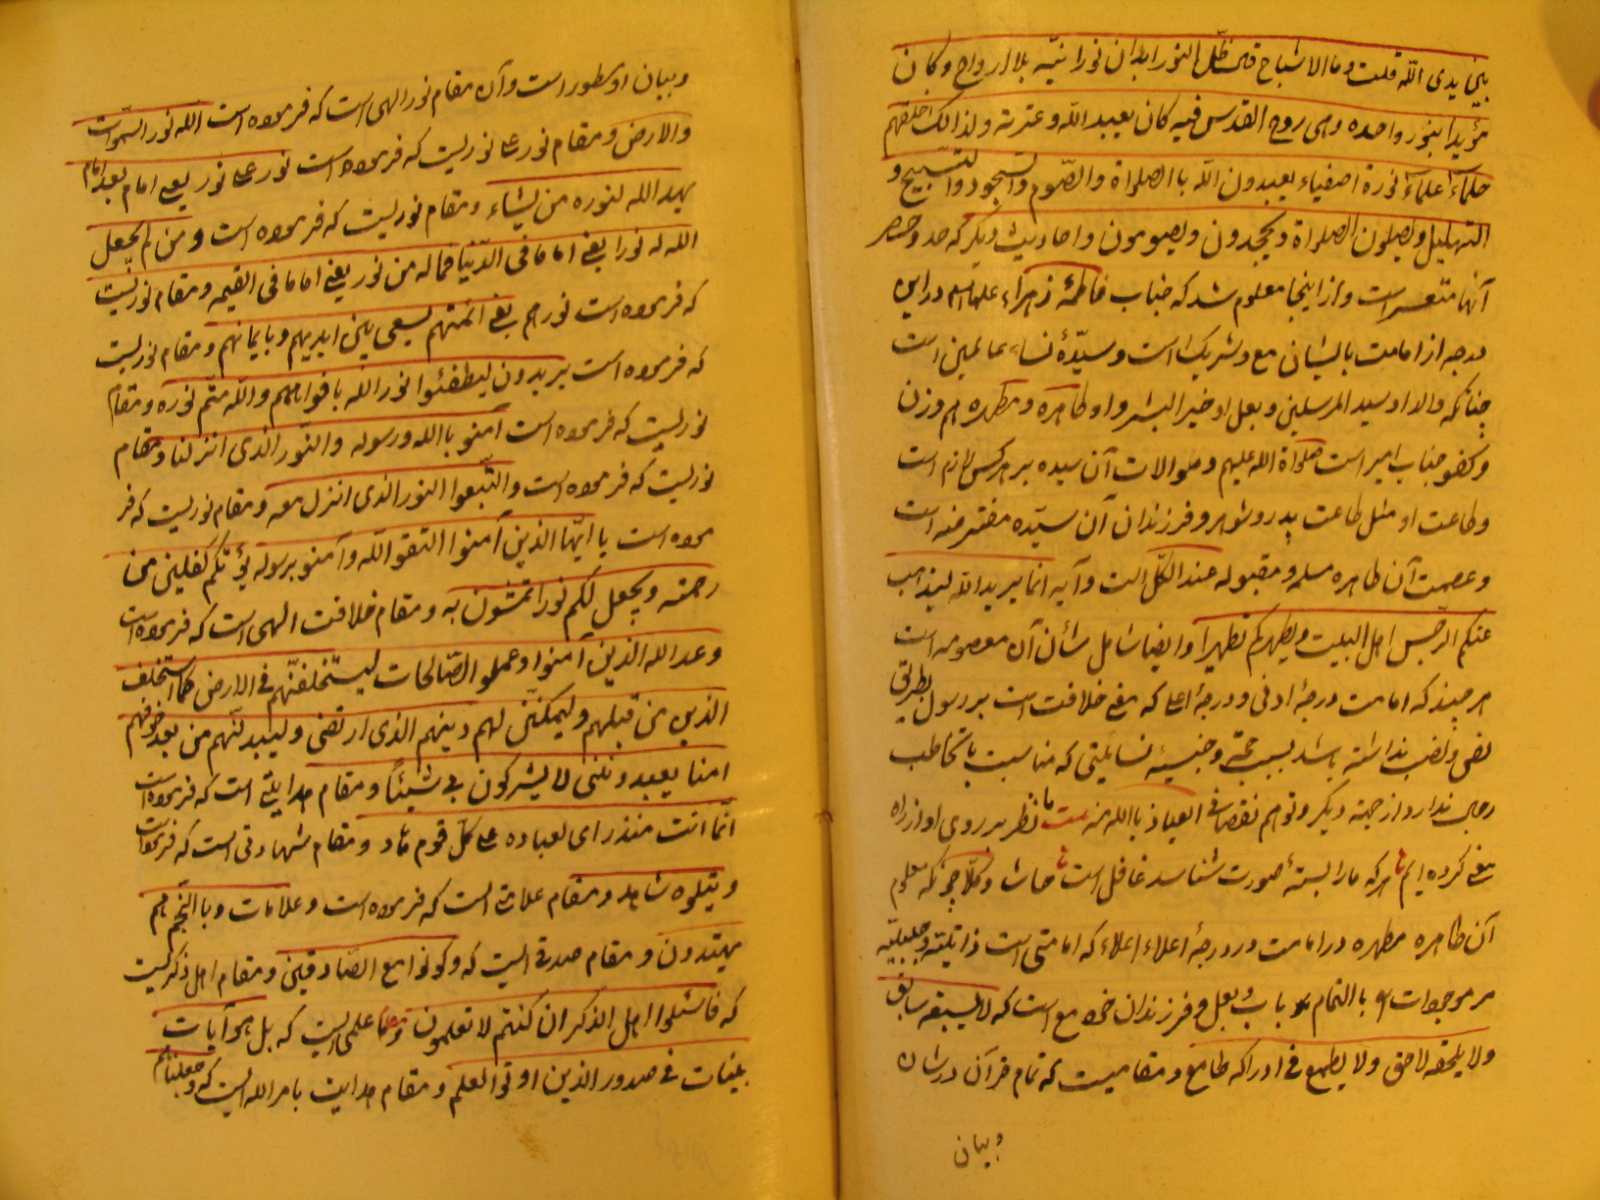 بین یدی الله قلت وما الاشباح قال ظل النور ابدان نورانیّه بلا ارواح وکان
مؤیدا بنور واحده وهی روح القدس فیه کان یعبد الله وعترته ولذالک خلقهم
حلماء علماء نورة اصفیاء یعبدون الله باالصلواة والصّوم والسّجود والتسبیح و
التهلیل ویصلون الصلواة ویحجدون ویصومون واحادیث دیگر که حد وحصر
آنها متعسر است واز اینجا معلوم شد که جناب فاطمهٔ زهراء علیها سلم در این
درجه از امامت باایشان مع وشریک است وسیّدهٔ نساء عالمین است
چنانکه والد او سید المرسلین وبعل او خیر البشر واو طاهره ومطهره هم وزن
وکفو جناب امیر است صلواة الله علیهم وموالات آن سیده بر هر کس لازم است
وطاعت او مثل طاعت پدر وشوهر وفرزندان آن سیّده مفترضه است
وعصمت آن طاهره مسلم ومقبوله عند الکلّ است وآیه انما یرید الله لیذهب
عنکم الرجس اهل البیت ویطهرکم تطهیرا وایضا شامل شأن آن معصومه است
هر چند که امامت درجهٔ ادنی ودرجهٔ اعلا که مع خلافت است بر رسول بطریق
نص ونصب نداشته باشد بسبب جهة وجنسیه نسائیتی که مناسبت با تخاطب
رجال ندارد از جهته دیگر وتوهم نقصانی العیاذ باالله منه ست ما نظر بر روی او از راه
مع کرده ایم هر که ما را بسته صورت شناسد غافل است حاشا وکلا چونکه معلوم
آن طاهره مطهره در امامت ودرجهٔ اعلاء اعلاء که امامتی است ذاتیته وجبلیّه
بر موجودات باالتمام باب وبعل وفرزندان خود مع است که لا یسبقه سابق
ولا یلحقه لاحق ولا یطمع فی ادراکه طامع ومقامیست که تمام قرآن در شان
وبیان
وبیان او مسطور است وآن مقام نور الهی است که فرموده است الله نور السموات
والارض ومقام نور علی نوریست که فرموده است نور علی نور یعنی امام بعد امام
یهد الله لنوره من یشاء ومقام نوریست که فرموده است ومن لم یجعل
الله له نورا یعنی اماما فی الدّنیا فما له من نور یعنی اماما فی القیمه ومقام نوریست
که فرموده است نورهم یعنی ائمتهم یسعی بین ایدیهم وبایمانهم ومقام نوریست
که فرموده است یریدون لیطفئوا نور الله بافواههم والله متّم نوره ومقام
نوریست که فرموده است آمنو باالله ورسوله والنّور الذی انزلنا ومقام
نوریست که فرموده است والتّبعوا النور الذی انزل معه ومقام نوریست که فر
موده است یا ایّها الذین آمنوا التقو الله وآمنو برسوله یؤتکم کفلین من
رحمته ویجعل لکم نورا تمشون به ومقام خلافت الهی است که فرموده است
وعد الله الذین آمنوا وعملو الصّالحات لیستخلفنّهم فی الارض کما استخلف
الذین من قبلهم ولیمکننّ لهم دینهم الذی ارتضی ولیبدلنّهم من بعد خوفهم
امنا یعبدوننی لا یشرکون بی شیئاً ومقام هدایتی است که فرموده است
انّما انت منذر ای لعباده علی کلّ قوم هاد ومقام شهادتی است که فرموده
ویتلوه شاهد ومقام علامتی است که فرموده است وعلامات وباالنّجم هم
یهتدون ومقام صدقی است که وکونوا مع الصّادقین ومقام اهل ذکریست
که فاسئلوا اهل الذکر ان کنتم لا تعلمون ومقام علمی است که بل هو آیات
بینات فی صدور الذین اوتو العلم ومقام هدایت بامر الله است که وجعلناهم